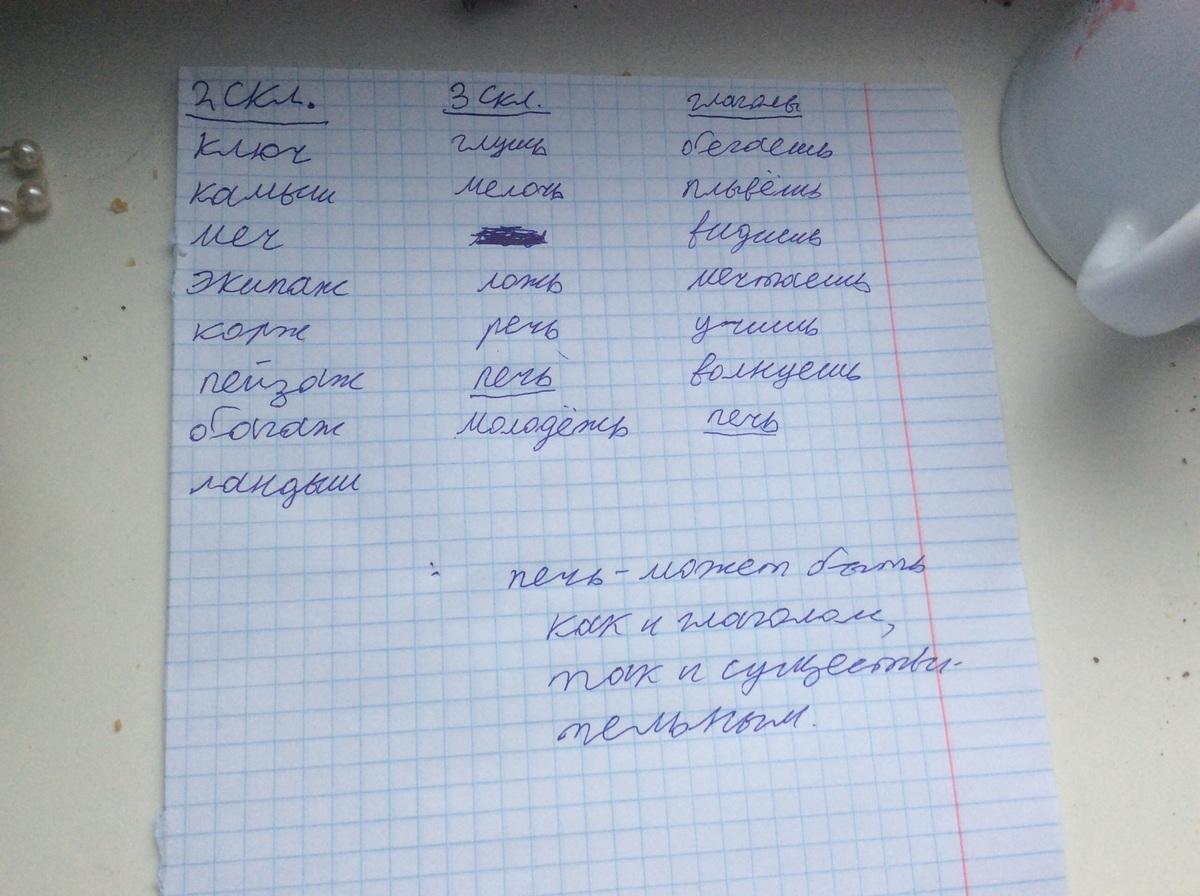 2 скл. 3 скл. глаголы
ключ глушь бегаешь
камыш мелочь плывёшь
меч видишь
экипаж ложь мечтаешь
корж речь учишь
пейзаж печь волнуешь
багаж молодёжь печь
ландыш
: печь - может быть
как и глаголом,
так и существи-
тельным.